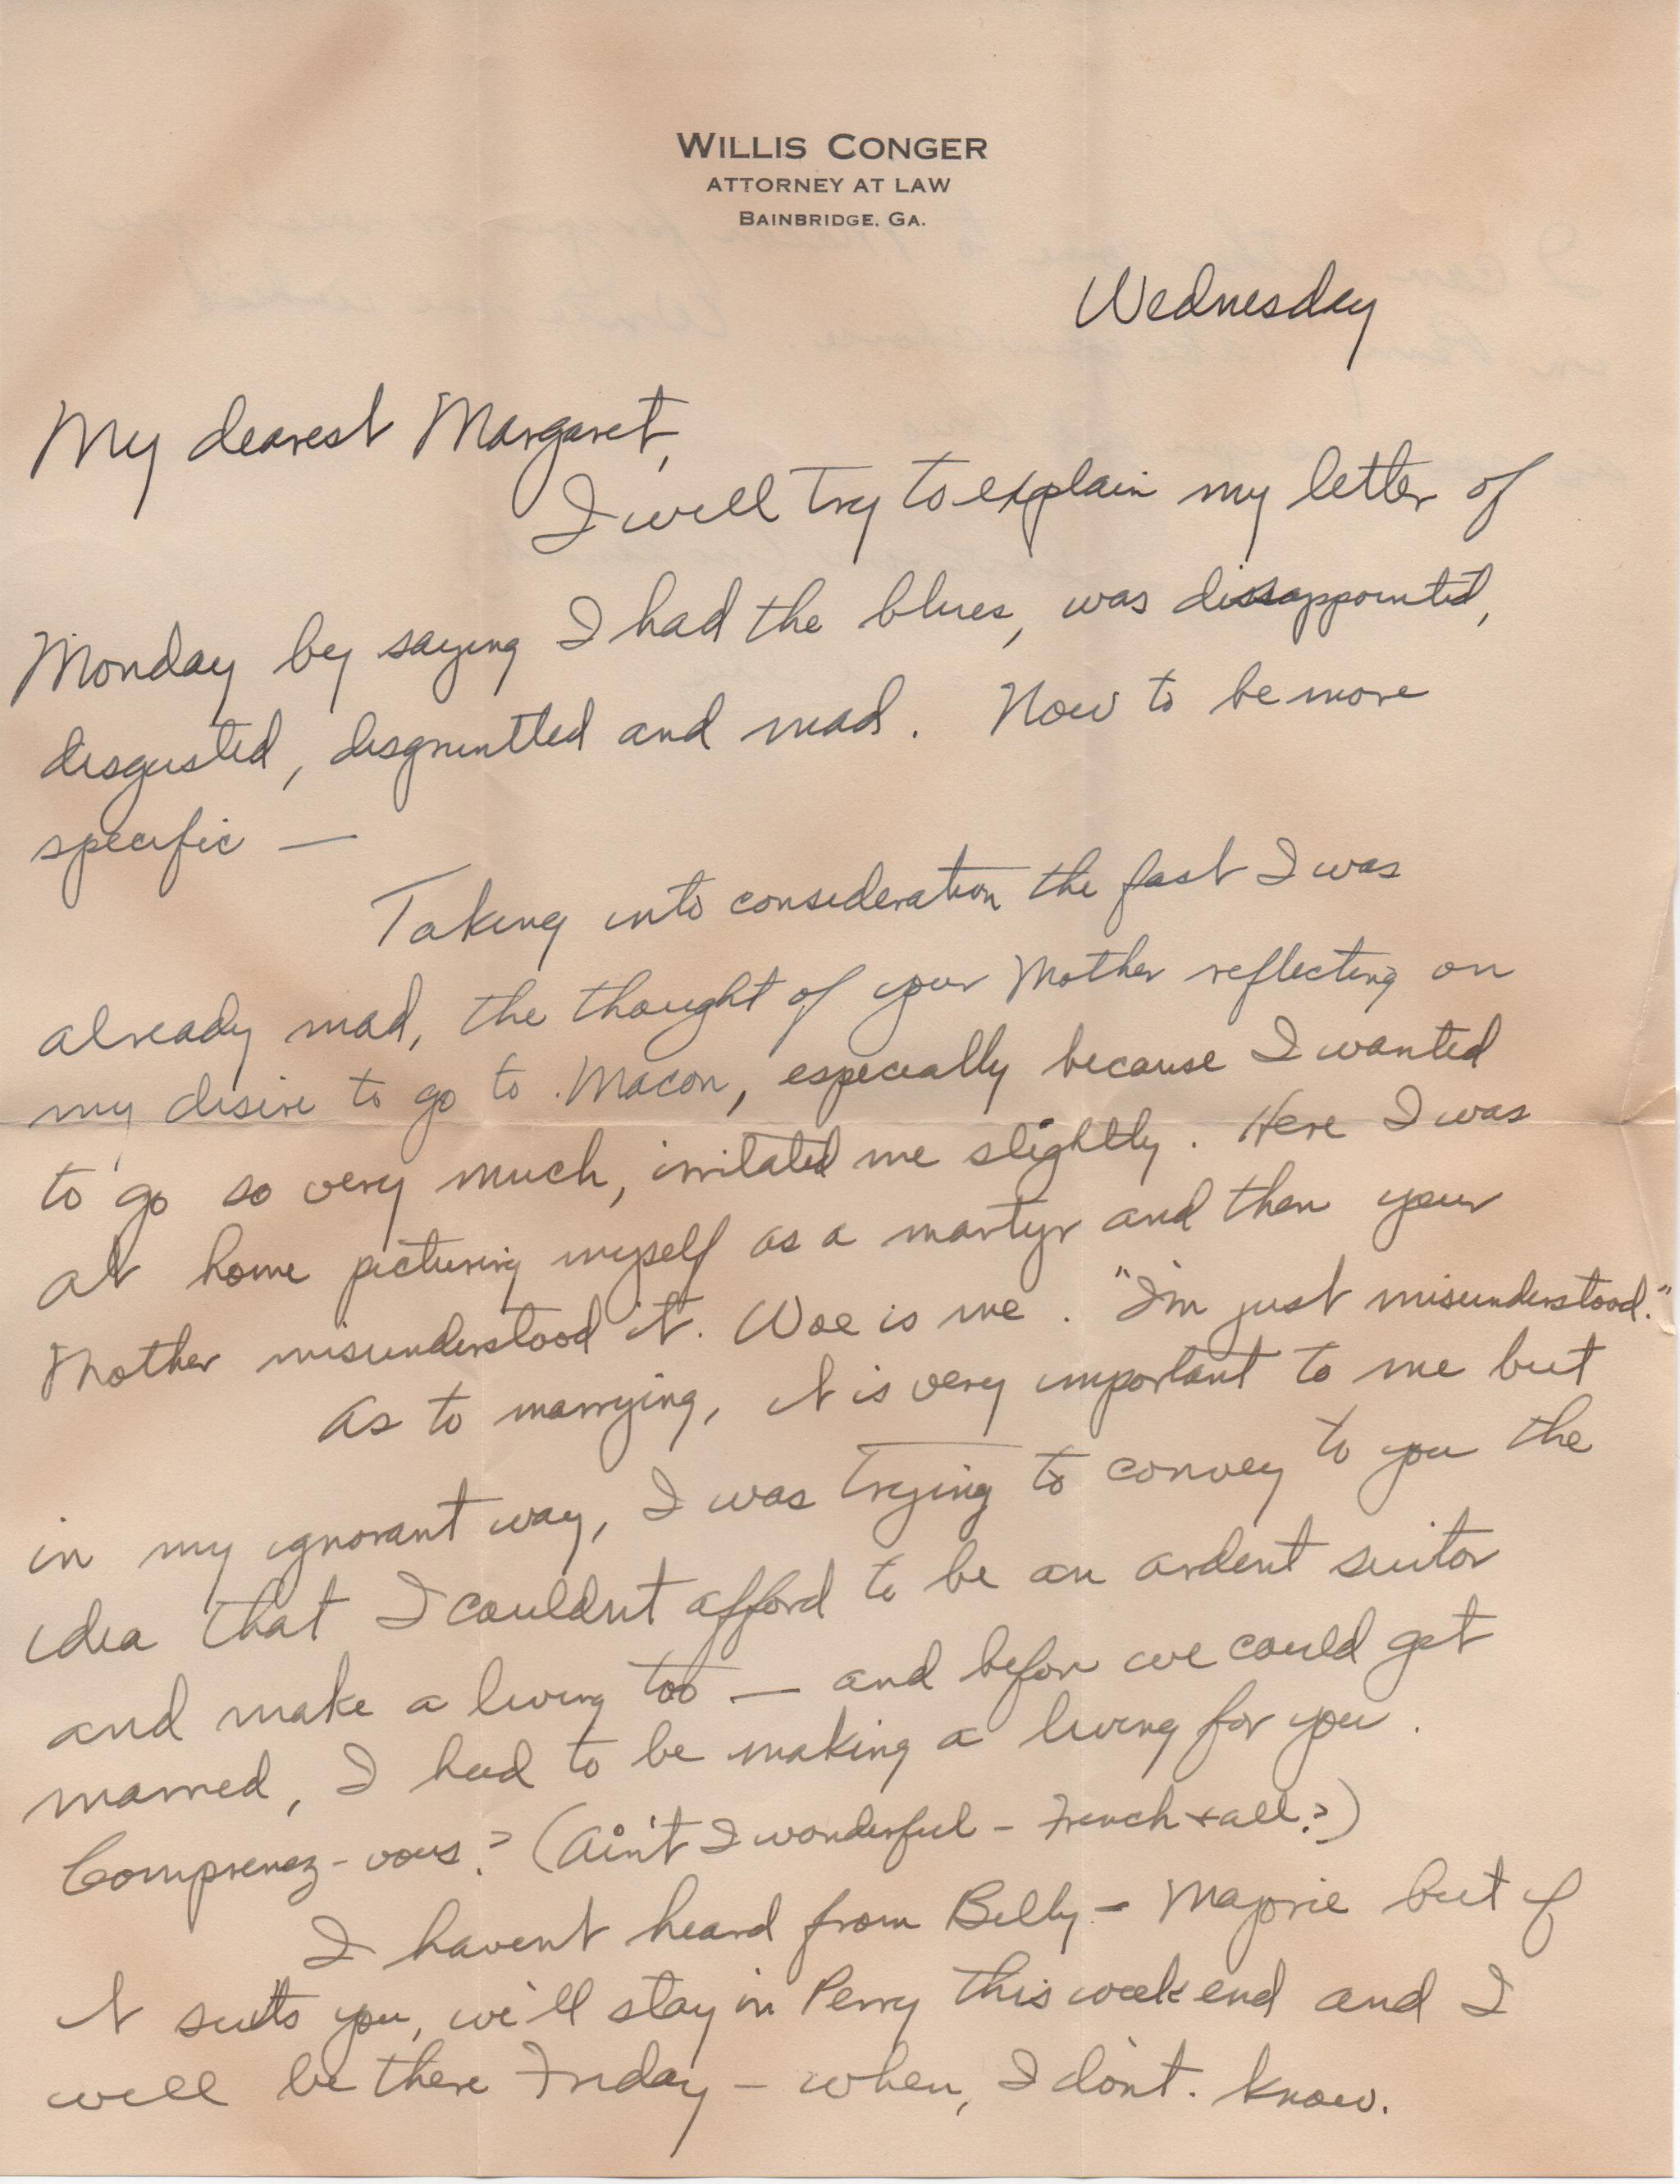 WILLIS CONGER
ATTORNEY AT LAW
BAINBRIDGE, GA.
Wednesday
My dearest Margaret,
I will try to explain my letter of
Monday by saying I had the blues, was dissappointed,
disgusted, disgruntled and mad. Now to be more
specific —
Taking into consideration the fast I was
already mad, the thought of your Mother reflecting on
my desire to go to Macon, especially because I wanted
to go so very much, irritated me slightly. Here I was
at home picturing myself as a martyr and then your
Mother misunderstood it. Woe is me. "I'm just misunderstood."
As to marrying, it is very important to me but
in my ignorant way, I was trying to convey to you the
idea that I couldn't afford to be an ardent suitor
and make a living too — and before we could get
married, I had to be making a living for you.
Comprenez-vous? (Ain't I wonderful – French + all?)
I haven't heard from Billy – Majorie but if
it suits you, we'll stay in Perry this week end and I
will be there Friday – when, I don't know.